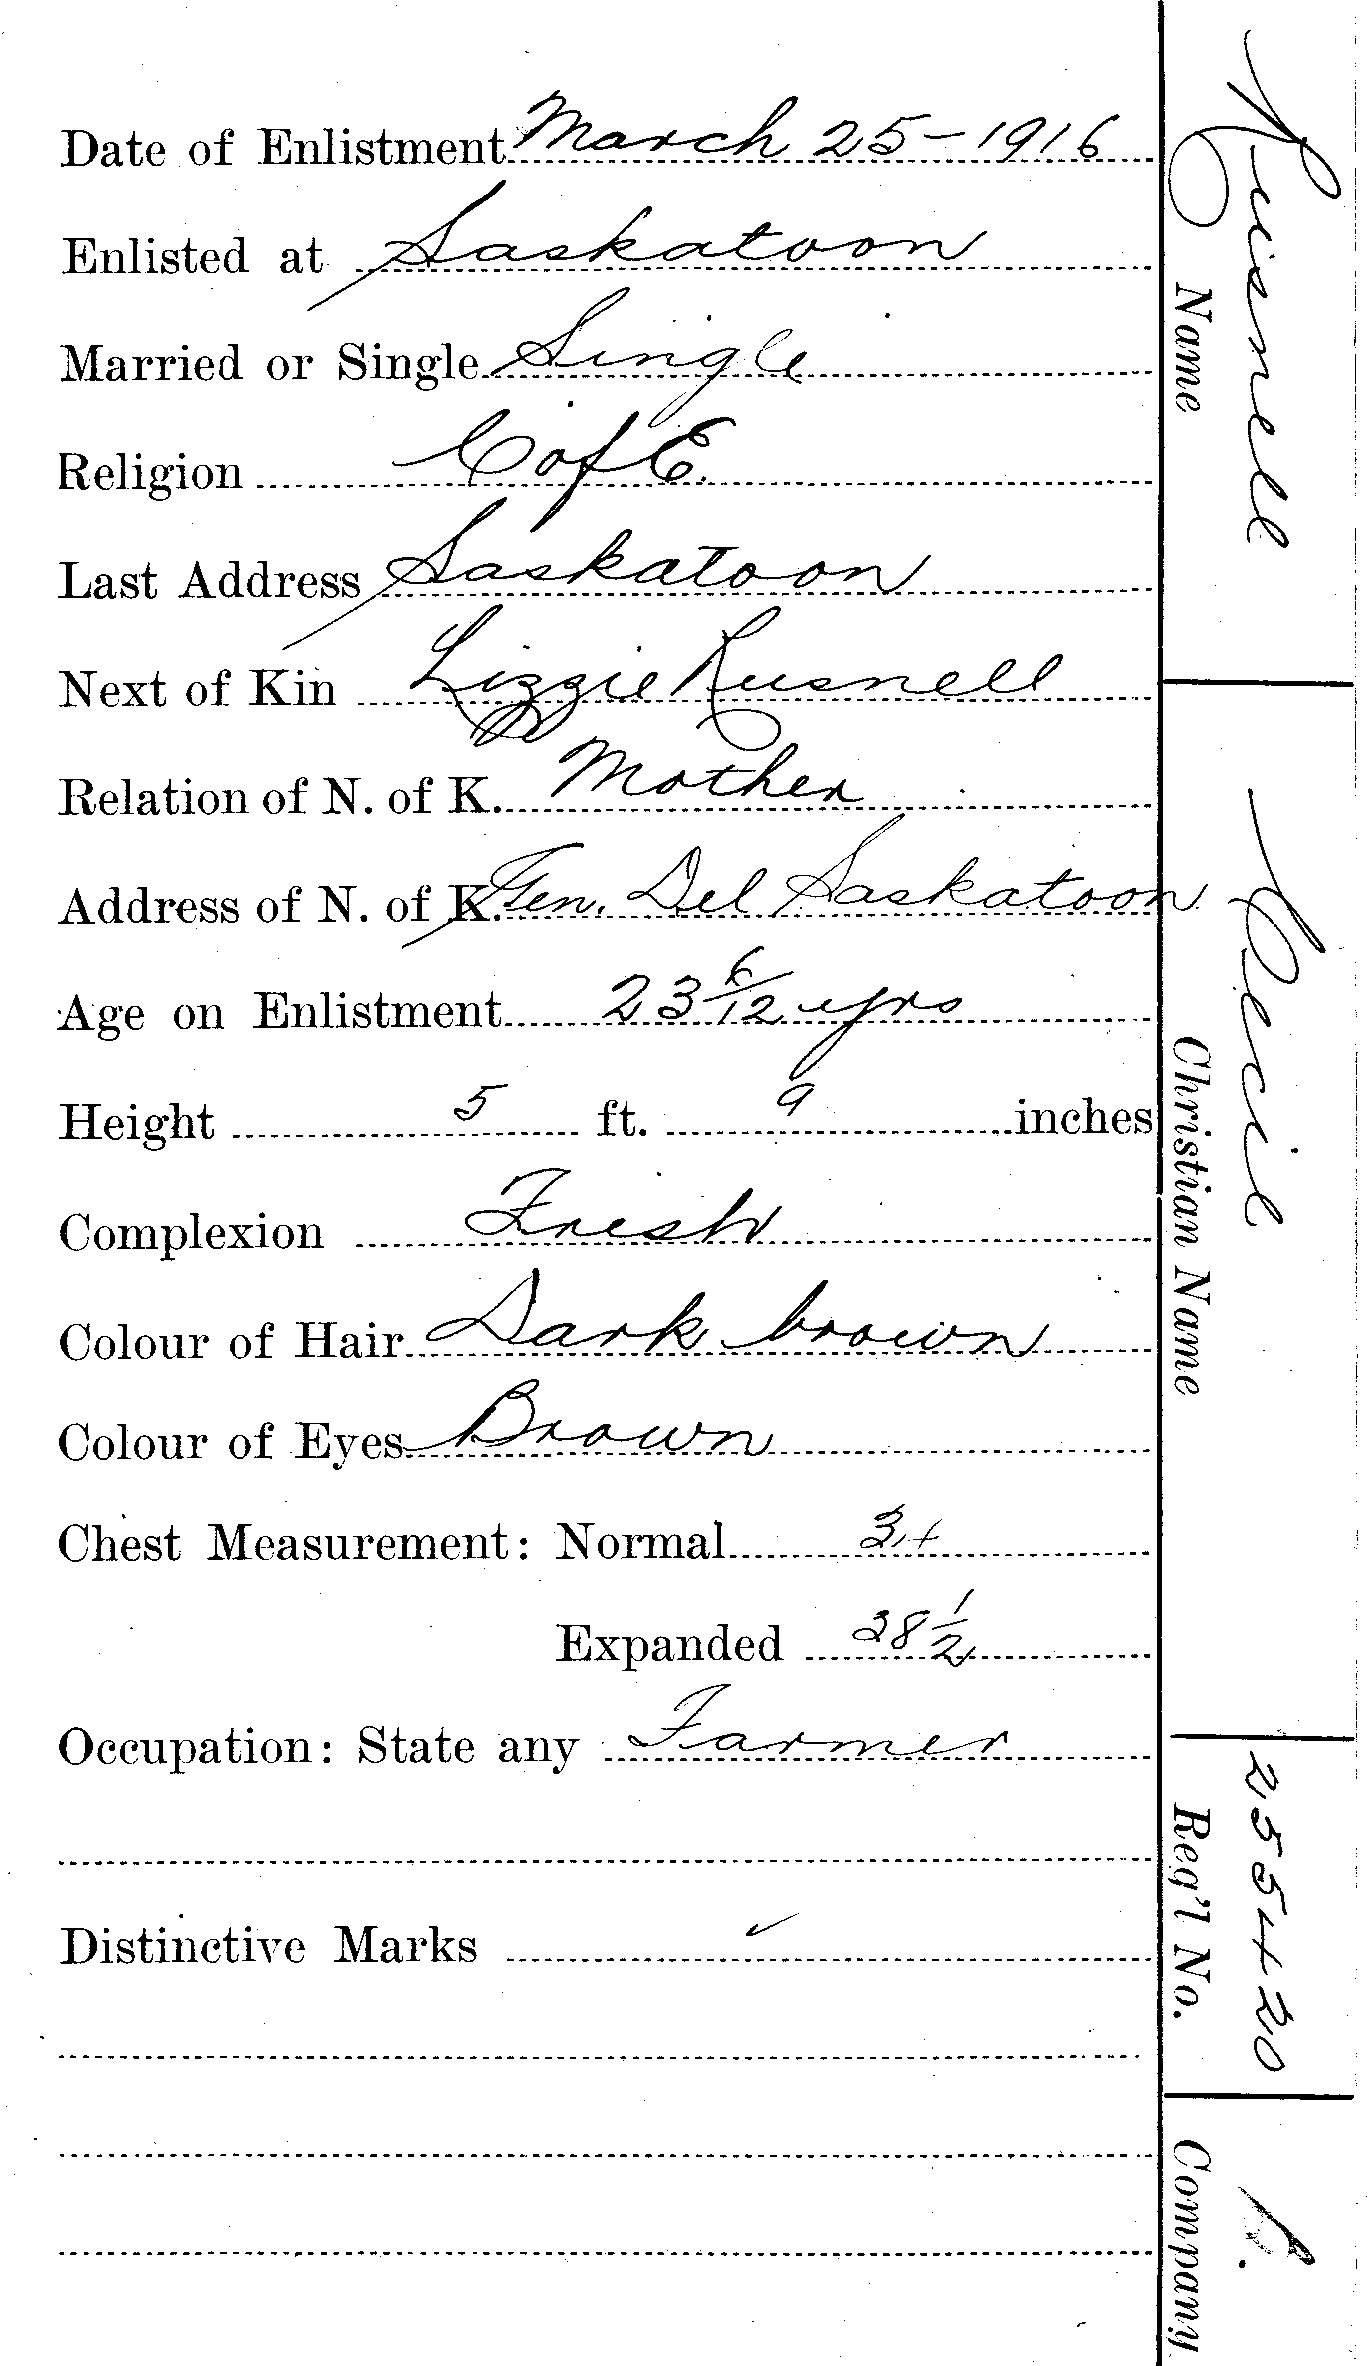 Date of Enlistment March 25-1916
Enlisted at Saskatoon
Married or Single Single
Religion C of E.
Last Address Saskatoon
Next of Kin Lizzie Rusnell
Relation of N. of K. Mother
Address of N. of K. Gen. Del Saskatoon
Age on Enlistment 23 6/12 yrs
Height 5 ft. 9 inches
Complexion Fresh
Colour of Hair Dark brown
Colour of Eyes Brown
Chest Measurement: Normal 34
Expanded 38 1/2
Occupation: State any Farmer
Distinctive Marks
Rusnell
Name
Cecil
Christian Name
255420
Reg'l No.
Company